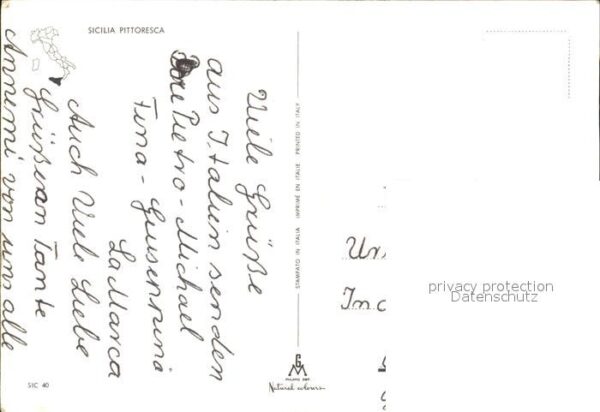 SICILIA PITTORESCA
Viele Grüße
aus Italuin senden
Pietro - Michael
Fina - Giuseppina
La Marca
Auch Viele Liebe
Grüße an Tante
Annemi von uns alle
STAMPATO IN ITALIA IMPRIMÉ EN ITALIE PRINTED IN ITALY
GM
Natural colours
SIC 40
privacy protection
Datenschutz